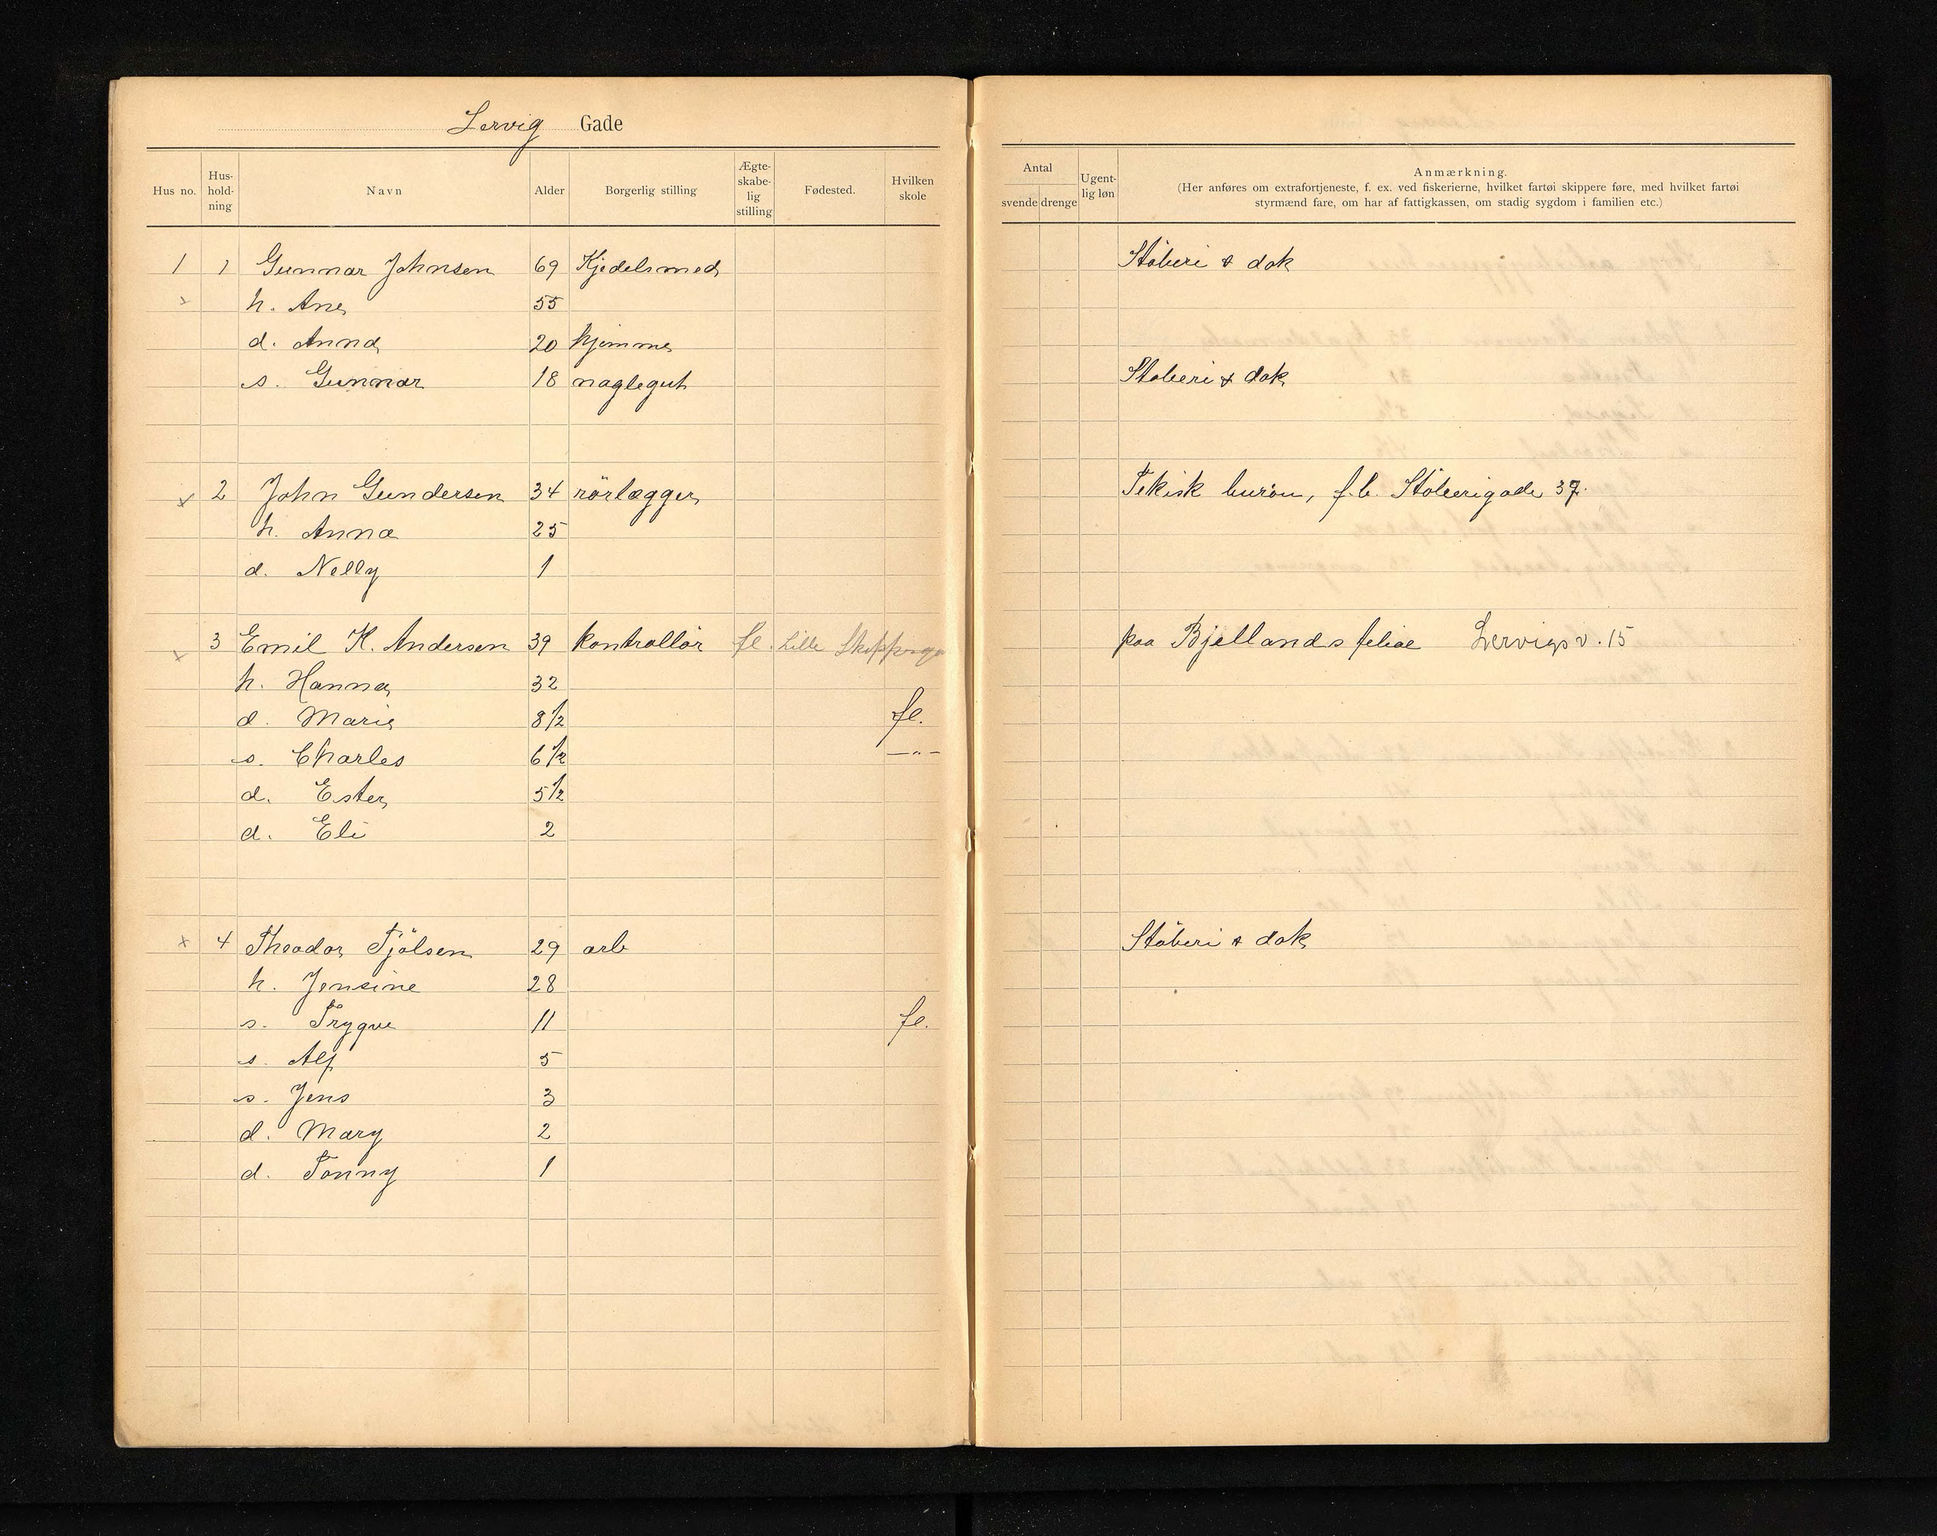 Lervig Gade
Hus no. Hus-hold-ning Navn Alder Borgerlig stilling Ægte-skabe-lig stilling Fødested. Hvilken skole Antal svende drenge Ugent-lig løn Anmærkning.
(Her anføres om extrafortjeneste, f. ex. ved fiskerierne, hvilket fartøi skippere føre, med hvilket fartøi
styrmænd fare, om har af fattigkassen, om stadig sygdom i familien etc.)
1 1 Gunnar Johnsen 69 Kjedelsmed Støberi & dok
h. Ane 55
d. Anna 20 hjemme
s. Gunnar 18 naglegut Støberi & dok
x 2 John Gundersen 34 rørlægger Tekisk burøu, f.b. Støberigade 37.
h. Anna 25
d. Nelly 1
x 3 Emil K. Andersen 39 kontrollør fl. Lille paa Bjellands feliae Lervigsv. 15
h. Hanna 32
d. Marie 8 1/2 fl.
s. Charles 6 1/2 —"—
d. Ester 5 1/2
d. Eli 2
x 4 Theodor Tjølsen 29 arb Støberi & dok
h. Jensine 28
s. Trygve 11 fl.
s. Alf 5
s. Jens 3
d. Mary 2
d. Tonny 1